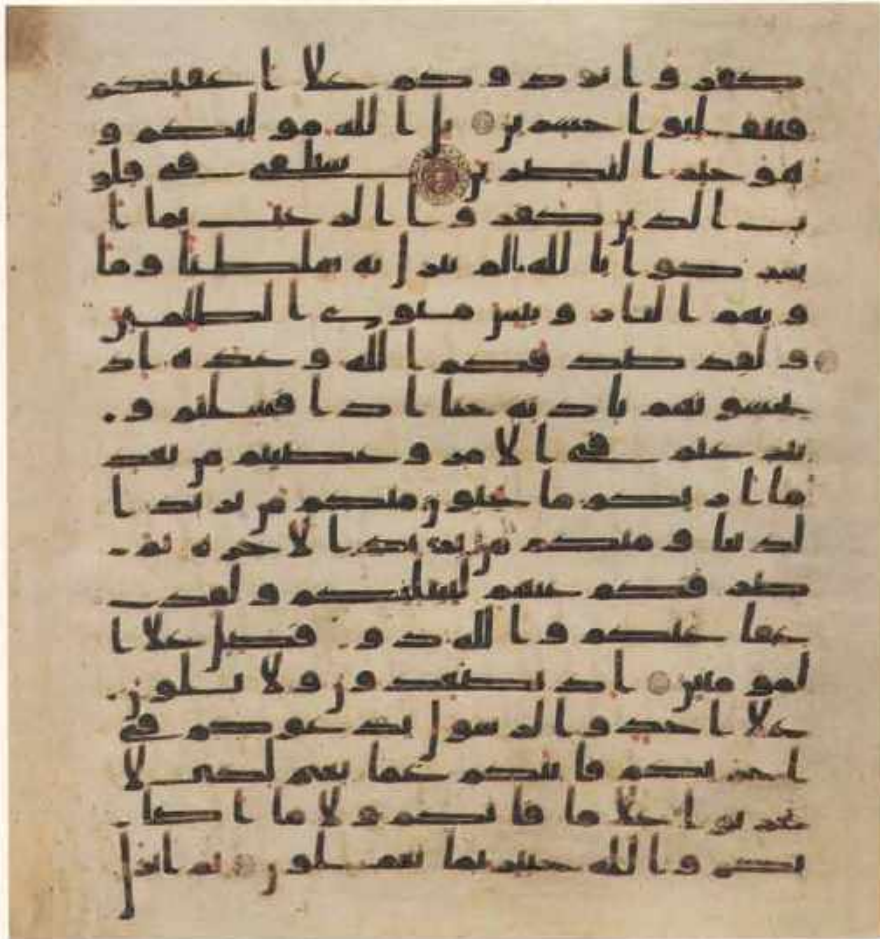 كفروا يردوكم علا اعقبكم
فتنقلبوا خسرين بل الله موليكم و
هو خير النصرين سنلقى فى قلو
ب الذين كفروا الرعب بما ا
شركوا بالله ما لم ينزل به سلطنا وما
ويهم النار وبئس مثوى الظلمين
ولقد صدقكم الله وعده اذ
تحسونهم باذنه حتا اذا فشلتم و
تنزعتم فى الامر وعصيتم من بعد
ما اريكم ما تحبون منكم من يريد ا
لدنيا ومنكم من يريد الاخره ثم
صرفكم عنهم ليبتليكم ولقد
عفا عنكم والله ذو فضل علا ا
لمومنين اذ تصعدون ولا تلون
علا احد والرسول يدعوكم فى
اخريكم فاثبكم غما بغم لكى لا
تحزنوا علا ما فاتكم ولا ما اصا
بكم والله خبير بما تعملون ثم انزل